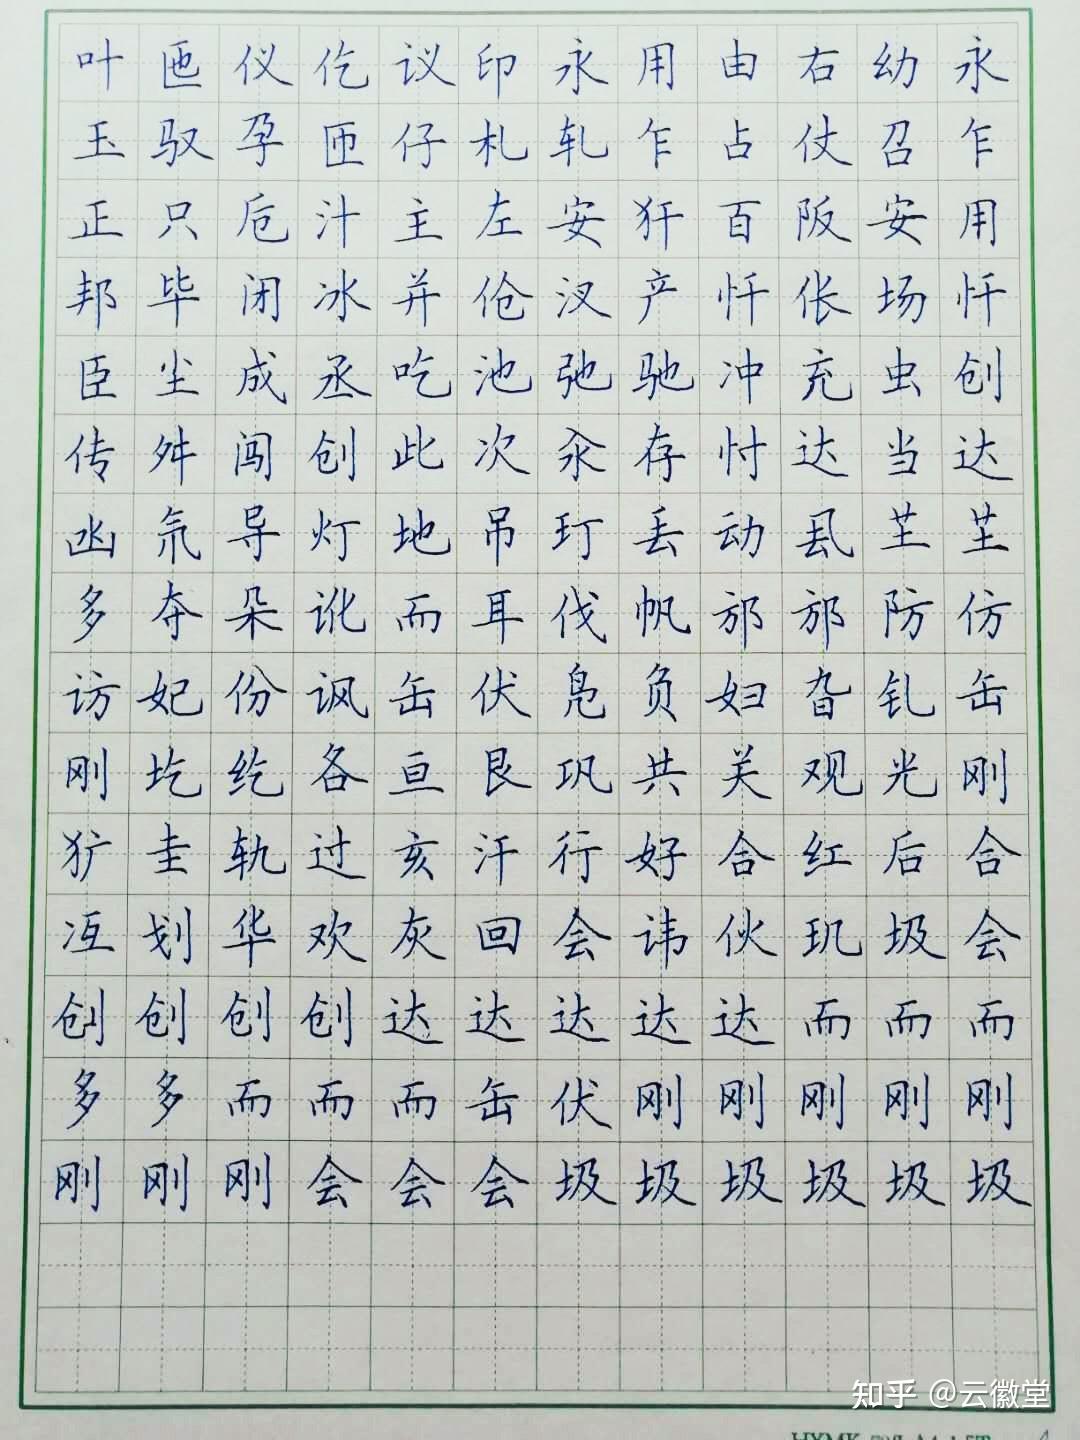 叶匜仪仡议印永用由右幼永
玉驭孕匝仔札轧乍占仗召乍
正只卮汁主左安犴百阪安用
邦毕闭冰并伧汊产忏伥场忏
臣尘成丞吃池弛驰冲充虫创
传舛闯创此次汆存忖达当达
凼氘导灯地吊玎丢动厾芏芏
多夺朵讹而耳伐帆邡邡防仿
访妃份讽缶伏凫负妇旮钆缶
刚圪纥各亘艮巩共关观光刚
犷圭轨过亥汗行好合红后合
冱划华欢灰回会讳伙玑圾会
创创创创达达达达达而而而
多多而而而缶伏刚刚刚刚刚
刚刚刚会会会圾圾圾圾圾圾
知乎 @云徽堂